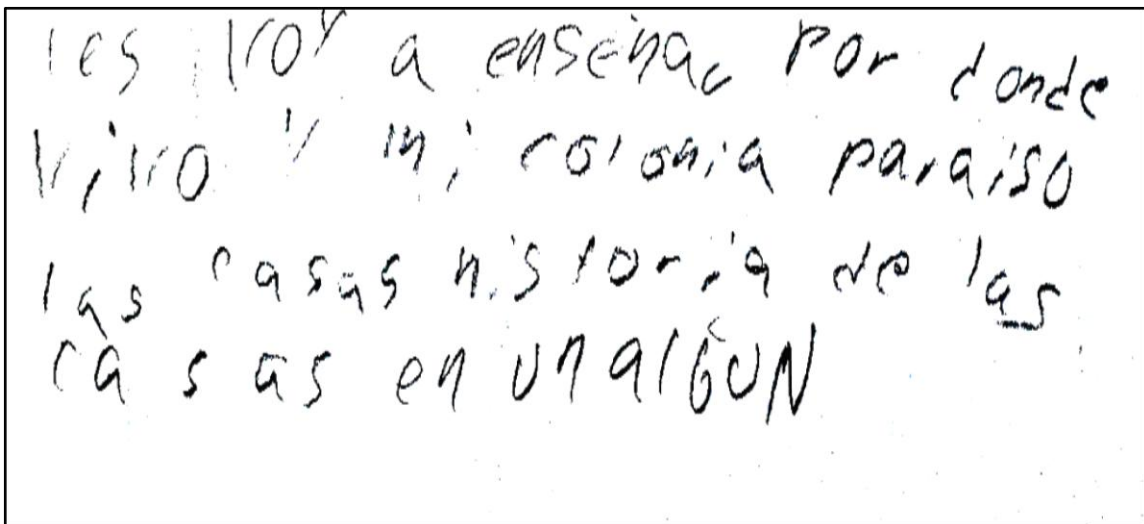 les voy a enseñar por donde
vivo y mi colonia paraiso
las casas historia de las
casas en un alGUN